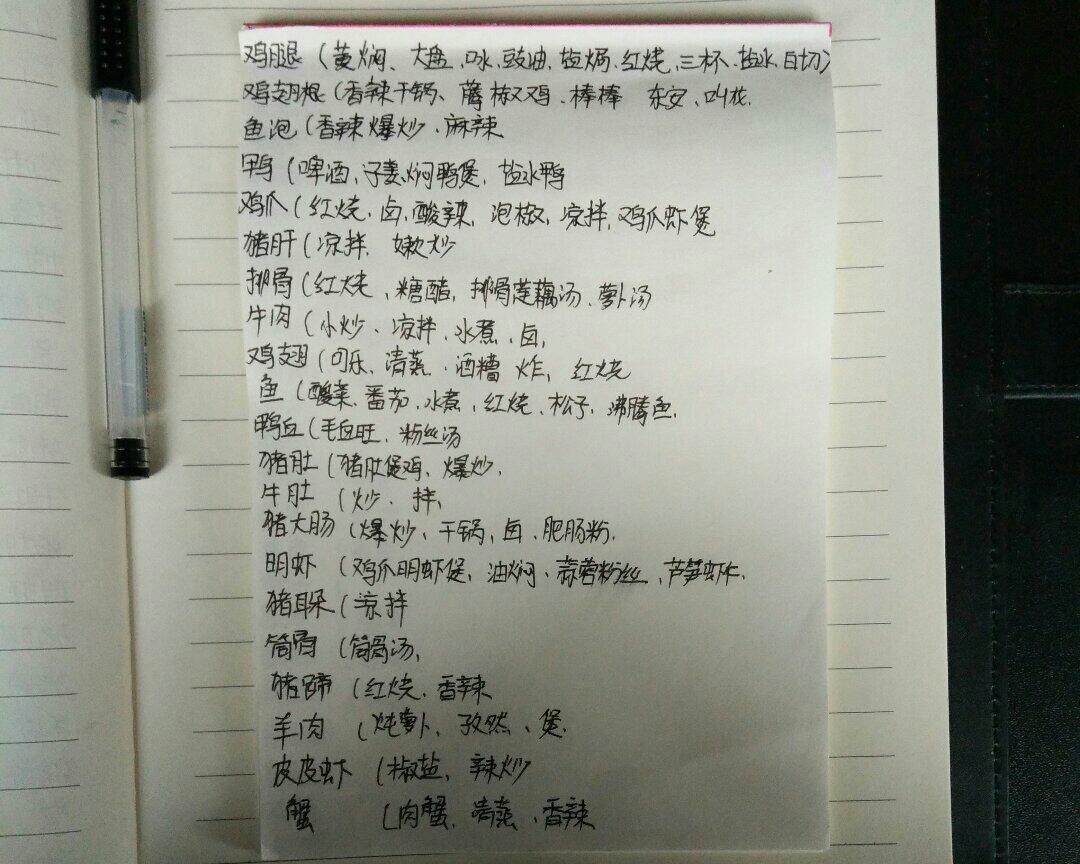 鸡腿（黄焖、大盘、口水、豉油、盐焗、红烧、三杯、盐水、白切）
鸡翅根（香辣干锅、藤椒鸡、棒棒 东安、叫花.
鱼泡（香辣爆炒、麻辣
鸭（啤酒、子姜焖鸭煲、盐水鸭
鸡爪（红烧、卤、酸辣、泡椒、凉拌，鸡爪虾煲
猪肝（凉拌、嫩炒
排骨（红烧、糖醋，排骨莲藕汤、萝卜汤
牛肉（小炒、凉拌、水煮、卤，
鸡翅（可乐、清蒸、酒糟 炸， 红烧
鱼（酸菜、番茄、水煮、红烧、松子、沸腾鱼.
鸭血（毛血旺、粉丝汤
猪肚（猪肚煲鸡、爆炒.
牛肚（炒、拌，
猪大肠（爆炒、干锅，卤、肥肠粉.
明虾（鸡爪明虾煲、油焖、蒜蓉粉丝、芦笋虾仁.
猪耳朵（凉拌
筒骨（筒骨汤，
猪蹄（红烧、香辣
羊肉（炖萝卜、孜然、煲.
皮皮虾（椒盐，辣炒
蟹（肉蟹、清蒸、香辣